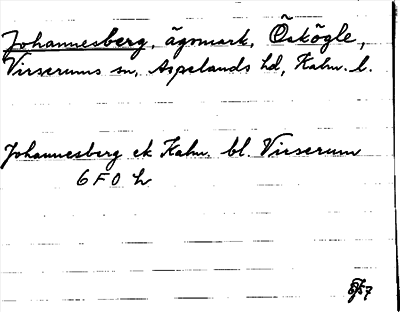 Johannesberg, ägomark, Öskögle,
Virserums sn, Aspelands hd, Kalm. l.
Johannesberg ek Kalm. bl. Virserum
6 F 0 h